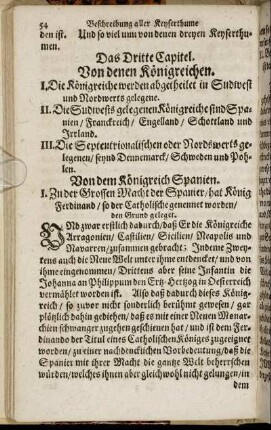 54 Beschreibung aller Keyserthume
den ist. Und so viel nun von denen dreyen Keyserthu-
men.
Das Dritte Capitel.
Von denen Königreichen.
I. Die Königreiche werden abgetheilet in Sudwest
und Nordwerts gelegene.
II. Die Sudwests gelegenen Königreiche sind Spa-
nien / Franckreich / Engelland / Schottland und
Irrland.
III. Die Septentrionalischen oder Nordswerts ge-
legenen / seynd Dennemarck / Schweden und Poh-
len.
Von dem Königreich Spanien.
I. Zu der Grossen Macht der Spanier / hat König
Ferdinand / so der Catholische genennet worden /
den Grund geleget.
UNd zwar erstlich dadurch / daß Er die Königreiche
Arragonien / Castilien / Sicilien / Neapolis und
Navarren / zusammen gebracht: Indem Zwey-
tens auch die Neue Welt unter ihme entdecket / und von
ihme eingenommen / Drittens aber seine Infantin die
Johanna an Philippum den Ertz-Hertzog in Oesterreich
vermählet worden ist. Also daß dadurch dieses König-
reich / so zuvor nicht sonderlich berühmt gewesen / gar
plötzlich dahin gediehen / daß es mit einer Neuen Monar-
chien schwanger zugehen geschienen hat / und ist dem Fer-
dinando der Titul eines Catholischen Königes zugeeignet
worden / zu einer nachdencklichen Vorbedeutung / daß die
Spanier mit ihrer Macht die gantze Welt beherrschen
würden / welches ihnen aber gleichwohl nicht gelungen / in
dem